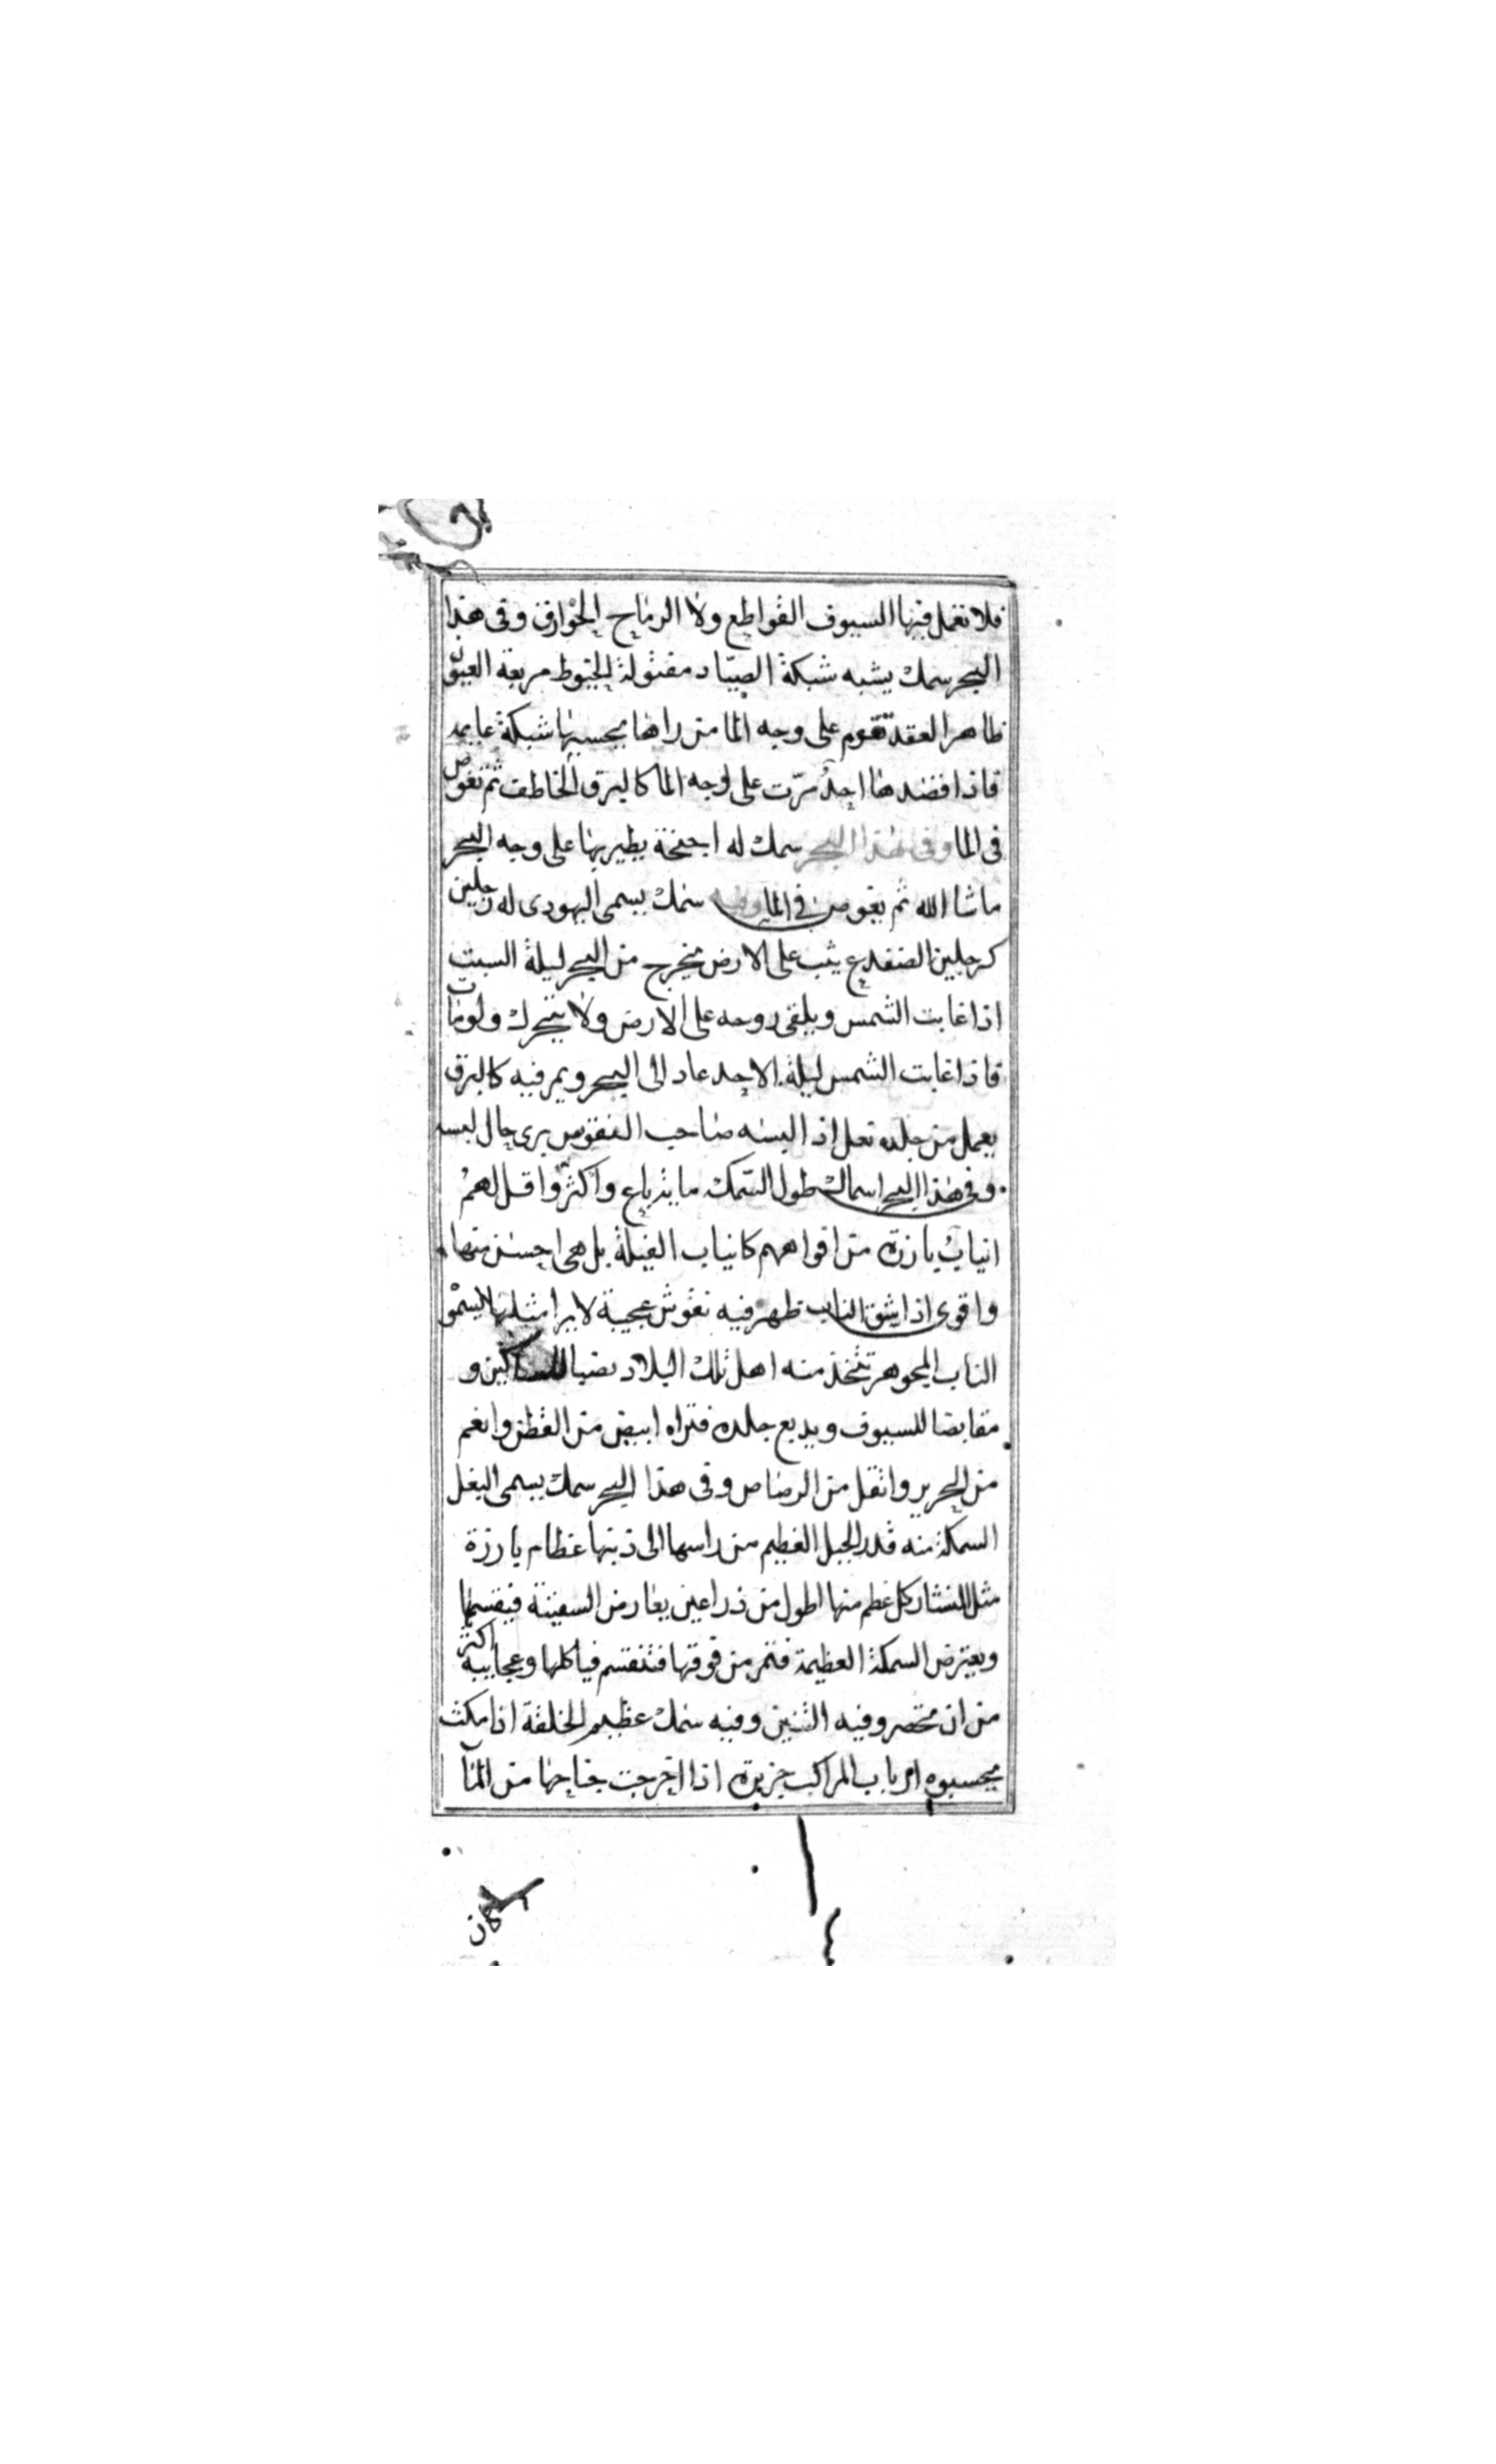 فلا تعمل فيها السيوف القواطع ولا الرماح الخوارق وفى هذا
البحر سمك يشبه شبكة الصياد مفتولة الخيوط مربعة العيون
ظاهر العقد تقوم على وجه الما من راها يحسبها شبكة
فاذا قصدها احد مرت على وجه الما كالبرق الخاطف ثم تغوص
فى الما وفى هذا البحر سمك له اجنحة يطير بها على وجه البحر
ماشا الله ثم يغوص فى الما وفيه سمك يسمى اليهودى له رجلين
كرجلين الضفدع يثب على الارض يخرج من البحر ليلة السبت
اذا غابت الشمس ويلقى روحه على الارض ولا يتحرك ولو مات
فاذا غابت الشمس ليلة الاحد عاد الى البحر ويمر فيه كالبرق
يعمل من جلده نعل اذ البسه صاحب النقوس برى حال لبسه
وفى هذا البحر اسماك طول السمك ماية باع واكثر واقل لهم
انياب بارزة من افواههم كانياب الفيلة بل هى احسن منها
واقوى اذا شق الناب ظهر فيه نقوش عجيبة لا يرا مثلها يسمو
الناب الجوهر تتخذ منه اهل تلك البلاد نصبا للسكاكين و
مقابضا للسيوف ويدبغ جلده فتراه ابيض من القطن وانعم
من الحرير واثقل من الرصاص وفى هذا البحر سمك يسمى البغل
السمكة منه قدر الجبل العظيم من راسها الى ذنبها عظام بارزة
مثل المنشار كل عظم منها اطول من ذراعين يعارض السفينة فيقسمها
ويعترض السمكة العظيمة فتمر من فوقها فتنقسم فياكلها وعجايبه اكثر
من ان تحصر وفيه التنين وفيه سمك عظيم الخلقة اذا مكث
يحسبوه ارباب المراكب جزيرة اذا اخرجت جناحها من المآ
كان